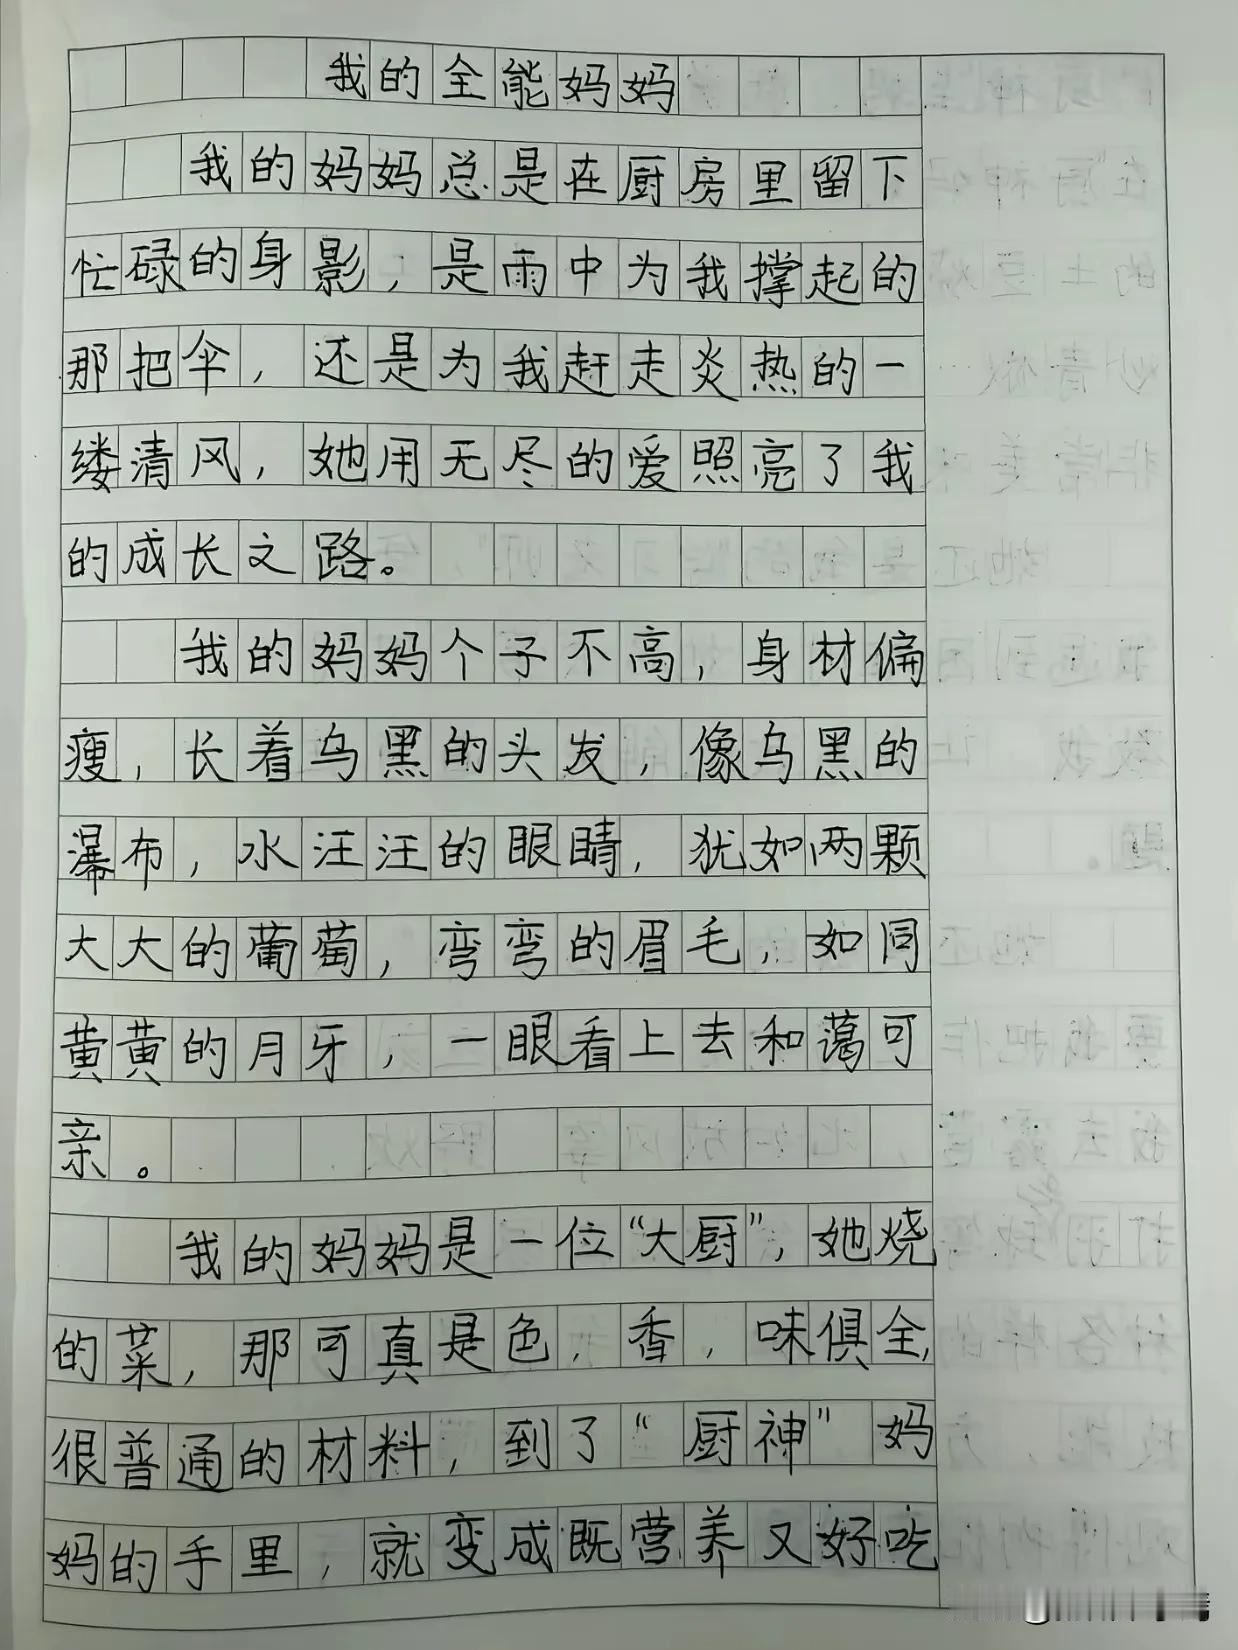 我的全能妈妈
我的妈妈总是在厨房里留下
忙碌的身影，是雨中为我撑起的
那把伞，还是为我赶走炎热的一
缕清风，她用无尽的爱照亮了我
的成长之路。
我的妈妈个子不高，身材偏
瘦，长着乌黑的头发，像乌黑的
瀑布，水汪汪的眼睛，犹如两颗
大大的葡萄，弯弯的眉毛，如同
黄黄的月牙，一眼看上去和蔼可
亲。
我的妈妈是一位“大厨”，她烧
的菜，那可真是色，香，味俱全，
很普通的材料，到了“厨神”妈
妈的手里，就变成既营养又好吃